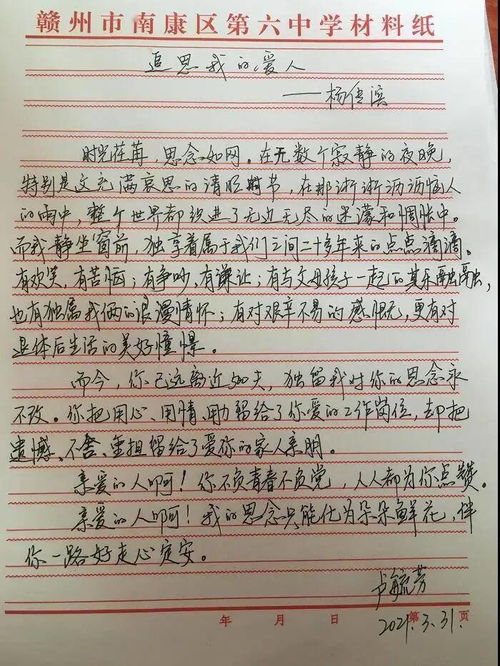 赣州市南康区第六中学材料纸
追思我的爱人
——杨传滨
时光荏苒，思念如网。在无数个寂静的夜晚，
特别是又充满哀思的清明时节，在那淅淅沥沥恼人
的雨中，整个世界都织进了无边无尽的迷濛和惆怅中。
而我静坐窗前，独享着属于我们之间二十多年来的点点滴滴。
有欢笑，有苦恼；有争吵，有谦让；有与父母孩子一起的其乐融融，
也有独属我俩的浪漫情怀；有对艰辛不易的感慨，更有对
退休后生活的美好憧憬。
而今，你已远离近500天，独留我对你的思念永
不改。你把用心、用情、用力留给了你爱的工作岗位，却把
遗憾、不舍、重担留给了爱你的家人亲朋。
亲爱的人啊！你不负青春不负党，人人都为你点赞。
亲爱的人啊！我的思念只能化为朵朵鲜花，伴
你一路好走心定安。
卢毓芳
2021.3.31.
年 月 第 页